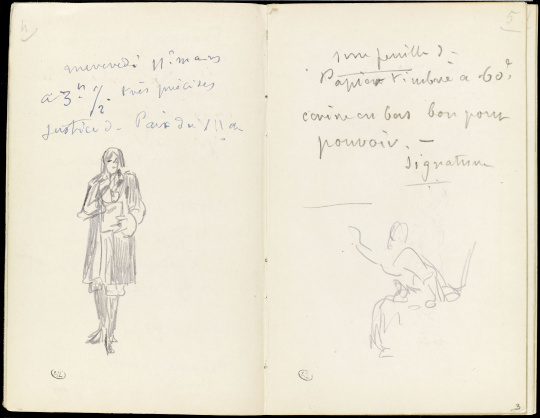 4
mercredi 11 mars
a 3h 1/2 très précises
Justice d. Paix du
5
une feuille d-
Papier timbré à 60c
écrire en bas bon pour
pouvoir. —
Signature
3